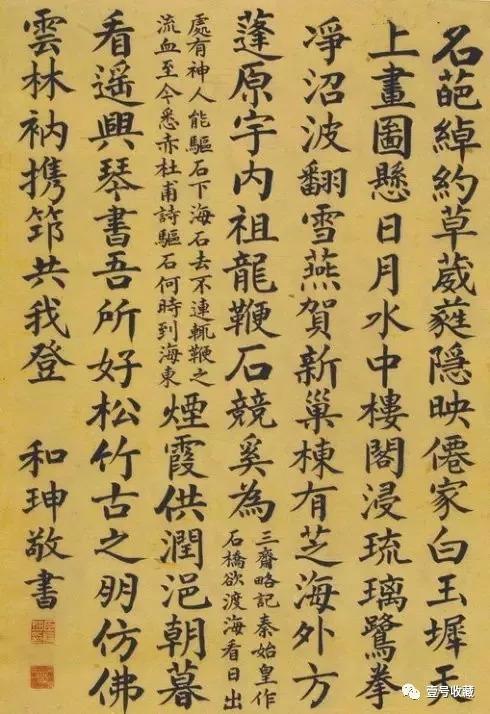 名葩綽約草葳蕤隱映僊家白玉墀天
上畫圖懸日月水中樓閣浸琉璃鷺拳
凈沼波翻雪燕賀新巢棟有芝海外方
蓬原宇内祖龍鞭石競奚為
三齋略記秦始皇作
石橋欲渡海看日出
處有神人能驅石下海石去不連輒鞭之
流血至今悉赤杜甫詩驅石何時到海東
煙霞供潤浥朝暮
看遙興琴書吾所好松竹古之朋仿佛
雲林衲携筇共我登 和珅敬書
壹号收藏